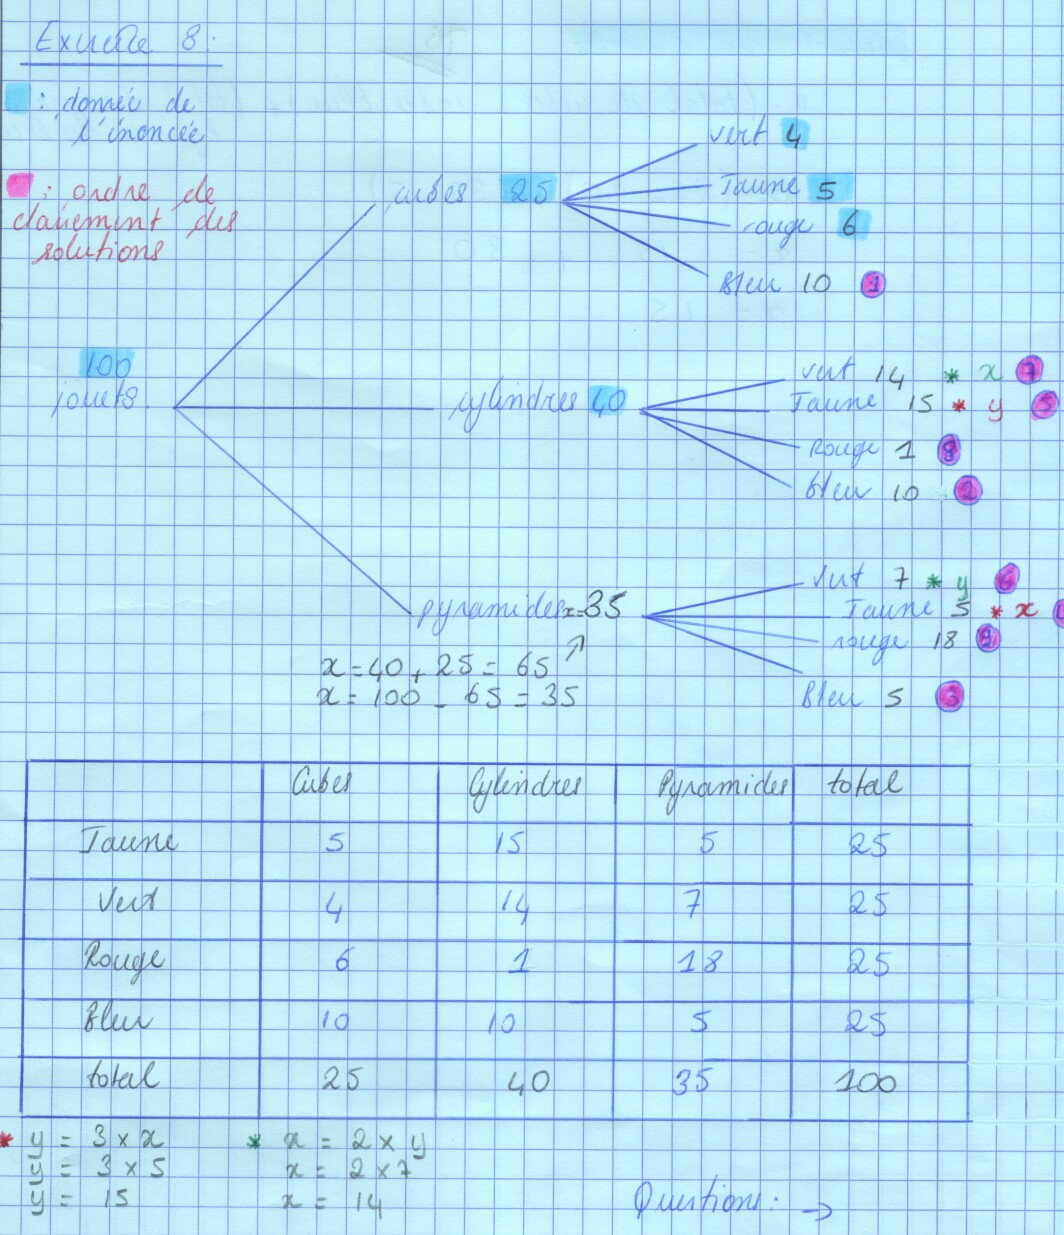 Exercice 8 :
: donnée de
l'énoncée
: ordre de
classement des
solutions
100
jouets
cubes 25
vert 4
Jaune 5
rouge 6
Bleu 10 1
cylindres 40
vert 14 * x 7
Jaune 15 * y 5
Rouge 1 8
bleu 10 2
pyramides x=35
x = 40 + 25 = 65
x = 100 - 65 = 35
Vert 7 * y 6
Jaune 5 * x
rouge 18 9
Bleu 5 3
Cubes Cylindres Pyramides total
Jaune 5 15 5 25
Vert 4 14 7 25
Rouge 6 1 18 25
Bleu 10 10 5 25
total 25 40 35 100
* y = 3 x x * x = 2 x y
y = 3 x 5 x = 2 x 7
y = 15 x = 14
Questions : →